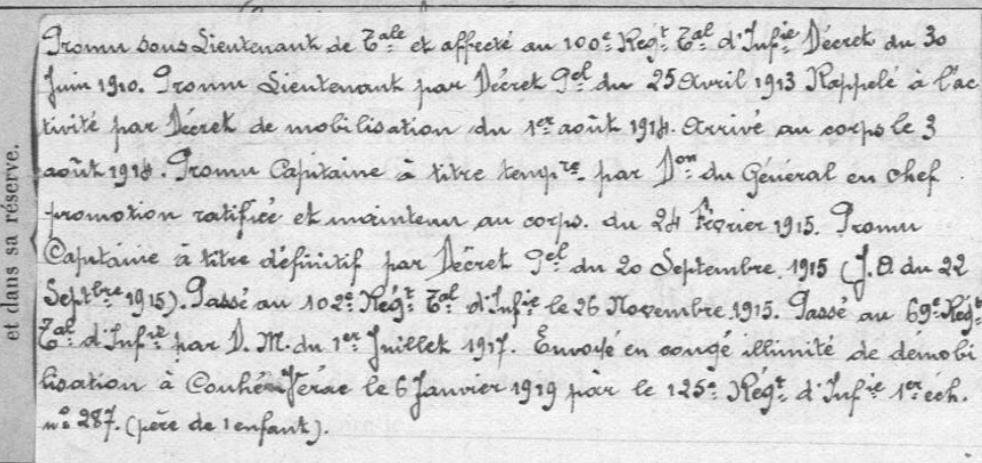 et dans sa réserve.
Promu sous Lieutenant de Tale et affecté au 100e Régt Tal d'Infie Décret du 30
Juin 1910. Promu Lieutenant par Décret Pel du 25 Avril 1913 Rappelé à l'ac
tivité par Décret de mobilisation du 1er août 1914. Arrivé au corps le 3
août 1914. Promu Capitaine à titre tempre par Don du Général en chef
promotion ratifiée et maintenu au corps. du 24 Février 1915. Promu
Capitaine à titre définitif par Décret Pel du 20 Septembre 1915 (J.O. du 22
Septbre 1915). Passé au 102e Régt Tal d'Infie le 26 Novembre 1915. Passé au 69e Régt
Tal d'Infie par D. M. du 1er Juillet 1917. Envoyé en congé illimité de démobi
lisation à Couhé-Vérac le 6 Janvier 1919 par le 125e Régt d'Infie 1er éch.
no 287. (père de 1 enfant).